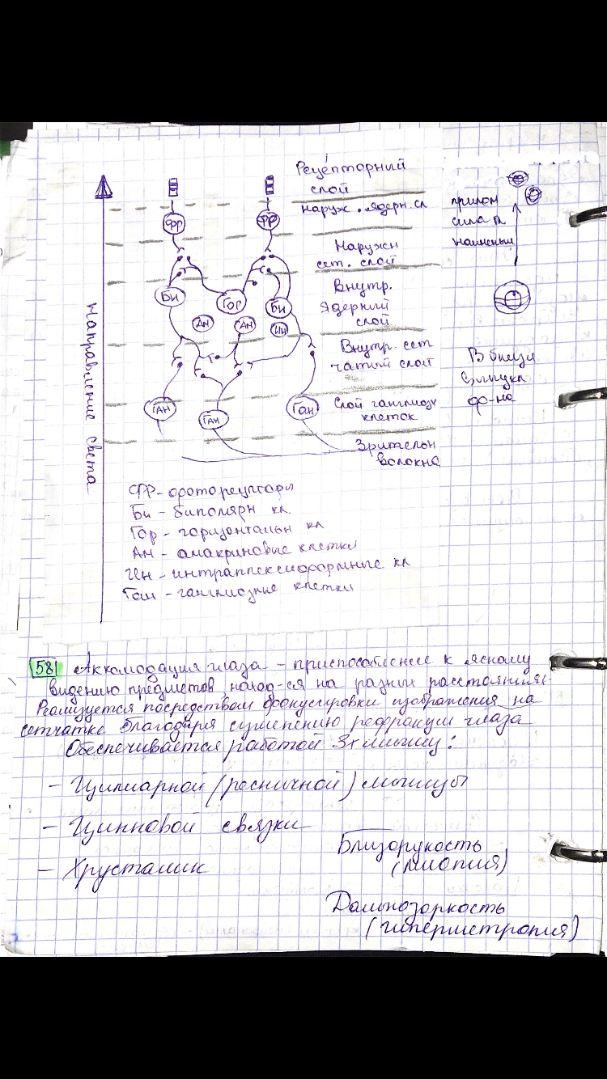 Рецепторный
слой
наруж. ядерн. сл
Наружн
сет. слой
Внутр.
Ядерный
слой
Внутр. сет
чатый слой
Слой ганглиозн
клеток
Зрительн
волокна
Направление света
ФР
ФР
Би
Гор
Би
АН
АН
ГАН
ГАН
Ган
прелом
сила
В близи
выпукл
ФР - фоторецепторы
Би - биполярн кл.
Гор - горизонтальн кл
Ан - амакриновые клетки
интраплексиформные кл
ганглиозные клетки
58 Аккомодация глаза - приспособление к ясному
видению предметов наход-ся на разном расстоянии.
Реализуется посредством фокусировки изображения на
сетчатке благодаря рефракции глаза
Обеспечивается работой 3х мышц:
- Цилиарной (ресничной) мышцы
- Цинновой связки
- Хрусталик
Близорукость
(миопия)
Дальнозоркость
(гиперметропия)